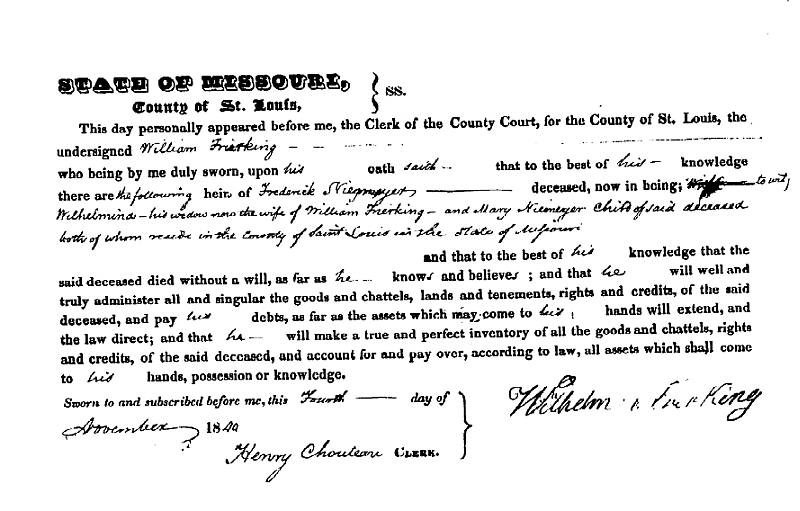 STATE OF MISSOURI, } ss.
County of St. Louis,
This day personally appeared before me, the Clerk of the County Court, for the County of St. Louis, the
undersigned William Frierking – –
who being by me duly sworn, upon his oath saith – that to the best of his – knowledge
there are the following heirs of Frederick Niemeyer deceased, now in being; to wit;
Wilhelmina – his widow now the wife of William Frierking – and Mary Niemeyer Child of said deceased
both of whom reside in the County of Saint Louis in the State of Missouri
and that to the best of his knowledge that the
said deceased died without a will, as far as he – knows and believes ; and that he will well and
truly administer all and singular the goods and chattels, lands and tenements, rights and credits, of the said
deceased, and pay his debts, as far as the assets which may come to his hands will extend, and
the law direct; and that he – will make a true and perfect inventory of all the goods and chattels, rights
and credits, of the said deceased, and account for and pay over, according to law, all assets which shall come
to his hands, possession or knowledge.
Sworn to and subscribed before me, this Fourth day of
November 1840
Wilhelm Frierking
Henry Chouteau CLERK.